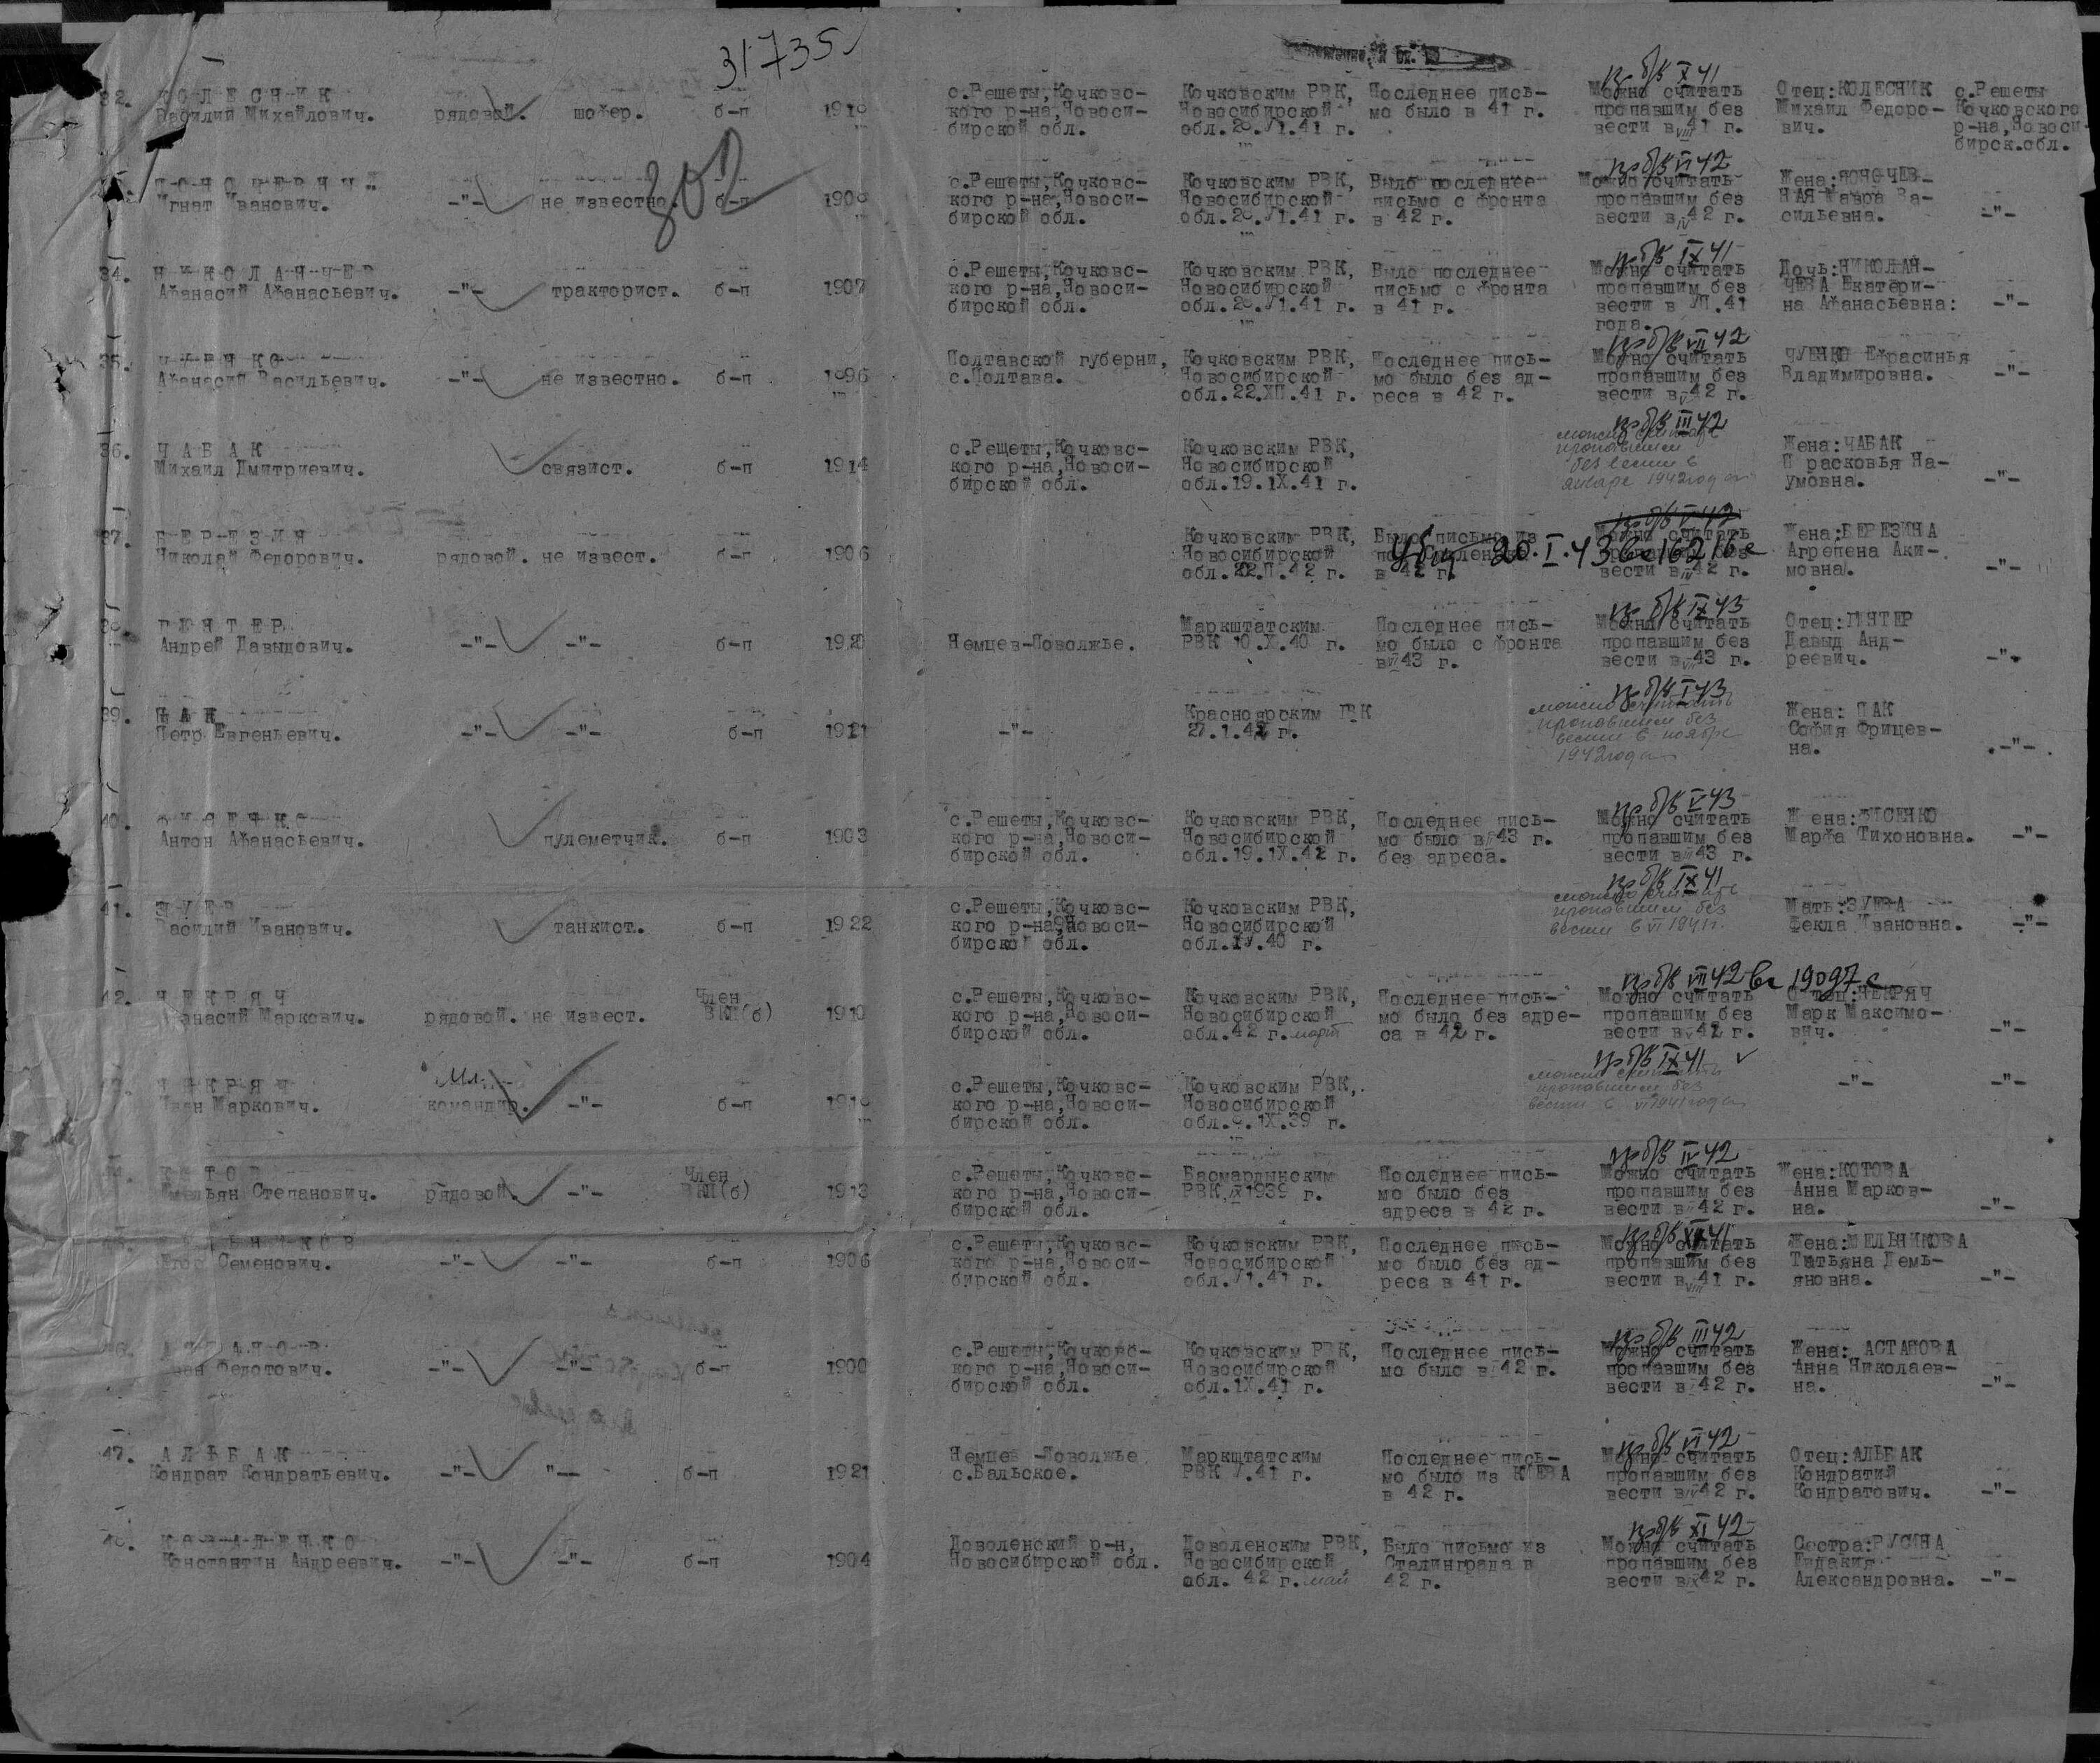 31735
802
32. КОЛЕСНИК
Василий Михайлович. рядовой. шофер. б-п 1918
с.Решеты,Кочковс-
кого р-на,Новоси-
бирской обл.
Кочковским РВК,
Новосибирской
обл.28.VI.41 г.
Последнее пись-
мо было в 41 г.
пр б/в X 41
Можно считать
пропавшим без
вести в VIII 41 г.
Отец:КОЛЕСНИК
Михаил Федоро-
вич.
с.Решеты
Кочковского
р-на,Новоси-
бирск.обл.
Игнат Иванович. -"- не известно. б-п 1908
с.Решеты,Кочковс-
кого р-на,Новоси-
бирской обл.
Кочковским РВК,
Новосибирской
обл.28.VI.41 г.
Было последнее
письмо с фронта
в 42 г.
пр б/в VI 42
Можно считать
пропавшим без
вести в IV 42 г.
Жена:
НАЯ Мавра Ва-
сильевна.
-"-
34. НИКОЛАЙЧЕВ
Афанасий Афанасьевич. -"- тракторист. б-п 1907
с.Решеты,Кочковс-
кого р-на,Новоси-
бирской обл.
Кочковским РВК,
Новосибирской
обл.28.VI.41 г.
Было последнее
письмо с фронта
в 41 г.
пр б/в IX 41
Можно считать
пропавшим без
вести в VII.41
года.
Дочь:НИКОЛАЙ-
ЧЕВА Екатери-
на Афанасьевна:
-"-
35. ЧУЕНКО
Афанасий Васильевич. -"- не известно. б-п 1896
Полтавской губерни,
с.Полтава.
Кочковским РВК,
Новосибирской
обл.22.XII.41 г.
Последнее пись-
мо было без ад-
реса в 42 г.
пр б/в VII 42
Можно считать
пропавшим без
вести в V 42 г.
ЧУЕНКО Ефрасинья
Владимировна.
-"-
36. ЧАБАК
Михаил Дмитриевич. связист. б-п 1914
с.Рещеты,Кочковс-
кого р-на,Новоси-
бирской обл.
Кочковским РВК,
Новосибирской
обл.19.IX.41 г.
пр б/в III 42
можно считать
пропавшим
без вести в
январе 1942 года
Жена:ЧАБАК
П расковья На-
умовна.
-"-
37. БЕРЕЗИН
Николай Федорович. рядовой. не извест. б-п 1906
Кочковским РВК,
Новосибирской
обл.22.II.42 г.
Было письмо из
в 42 г.
Убит 20.I.43
пр б/в V 42
Можно считать
вести в IV 42 г.
Жена:БЕРЕЗИНА
Агрепена Аки-
мовна.
-"-
38. ГЕНТЕР
Андрей Давыдович. -"- -"- б-п 1920
Немцев-Поволжье.
Маркштатским
РВК 10.X.40 г.
Последнее пись-
мо было с фронта
в VI 43 г.
пр б/в IX 43
Можно считать
пропавшим без
вести в VII 43 г.
Отец:
Давыд Анд-
реевич.
-"-
39. ПАК
Петр Евгеньевич. -"- -"- б-п 1921
-"-
Красноярским ГВК
27.1.42 г.
пр б/в I 43
можно считать
пропавшим без
вести в ноябре
1942 года
Жена: ПАК
София Фрицев-
на.
-"-.
40. ФИСЕНКО
Антон Афанасьевич. пулеметчик. б-п 1903
с.Решеты,Кочковс-
кого р-на,Новоси-
бирской обл.
Кочковским РВК,
Новосибирской
обл.19.IX.42 г.
Последнее пись-
мо было в II 43 г.
без адреса.
пр б/в V 43
Можно считать
пропавшим без
вести в III 43 г.
Ж ена:ФИСЕНКО
Марфа Тихоновна.
-"-
41. ЗУЕВ
Василий Иванович. танкист. б-п 1922
с.Решеты,Кочковс-
кого р-на,Новоси-
бирской обл.
Кочковским РВК,
Новосибирской
обл.IV.40 г.
пр б/в IX 41
можно считать
пропавшим без
вести в VI 1941 г.
Мать:ЗУЕВА
Фекла Ивановна.
-"-
42. ЧЕКРЯЧ
Афанасий Маркович. рядовой. не извест. Член
ВКП(б) 1910
с.Решеты,Кочковс-
кого р-на,Новоси-
бирской обл.
Кочковским РВК,
Новосибирской
обл.42 г. март
Последнее пись-
мо было без адре-
са в 42 г.
пр б/в VII 42 вх 19097 с
Можно считать
пропавшим без
вести в V 42 г.
Отец:ЧЕКРЯЧ
Марк Максимо-
вич.
-"-
ЧЕКРЯЧ
Иван Маркович. Мл. командир. -"- б-п 1918
с.Решеты,Кочковс-
кого р-на,Новоси-
бирской обл.
Кочковским РВК,
Новосибирской
обл.8.IX.39 г.
пр б/в IX 41
можно считать
пропавшим без
вести в VI 1941 года
-"- -"-
КОТОВ
Емельян Степанович. рядовой. -"- Член
ВКП(б) 1913
с.Решеты,Кочковс-
кого р-на,Новоси-
бирской обл.
Басмардынским
РВК,IX 1939 г.
Последнее пись-
мо было без
адреса в 42 г.
пр б/в IV 42
Можно считать
пропавшим без
вести в II 42 г.
Жена:КОТОВА
Анна Марков-
на.
-"-
МЕЛЬНИКОВ
Егор Семенович. -"- -"- б-п 1906
с.Решеты,Кочковс-
кого р-на,Новоси-
бирской обл.
Кочковским РВК,
Новосибирской
обл.VI.41 г.
Последнее пись-
мо было без ад-
реса в 41 г.
пр б/в XI 41
Можно считать
пропавшим без
вести в VIII 41 г.
Жена:МЕЛЬНИКОВА
Татьяна Демь-
яновна.
-"-
АСТАПОВ
Иван Федотович. -"- -"- б-п 1900
с.Решеты,Кочковс-
кого р-на,Новоси-
бирской обл.
Кочковским РВК,
Новосибирской
обл.IX.41 г.
Последнее пись-
мо было в 42 г.
пр б/в III 42
Можно считать
пропавшим без
вести в I 42 г.
Жена: АСТАПОВА
Анна Николаев-
на.
-"-
47. АЛЬБАК
Кондрат Кондратьевич. -"- "-- б-п 1921
Немцев -Поволжье
с.Вальское.
Маркштатским
РВК V.41 г.
Последнее пись-
мо было из КИЕВА
в 42 г.
пр б/в VI 42
Можно считать
пропавшим без
вести в IV 42 г.
Отец:АЛЬБАК
Кондратий
Кондратович.
-"-
48. КОВАЛЕНКО
Константин Андреевич. -"- -"- б-п 1904
Доволенский р-н,
Новосибирской обл.
Доволенским РВК,
Новосибирской
обл. 42 г. май
Было письмо из
Сталинграда в
42 г.
пр б/в XI 42
Можно считать
пропавшим без
вести в IX 42 г.
Сестра:РУСИНА
Евдакия
Александровна.
-"-